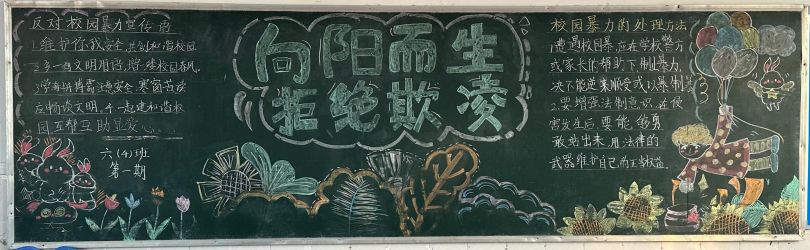 反对校园暴力宣传语
1.维护你我安全,共创和谐校园
2.多一句文明用语,增一楼校园春风
3.学海拼搏需注意安全,寒窗苦读
应畅谈文明,牛一起建和谐校
园互帮互助显爱心......
六(4)班
第一期
向阳而生
拒绝欺凌
校园暴力的处理方法
1.遭遇校园暴,应在学校警方
或家长的帮助下制止暴力,
决不能逆来顺受或以暴制暴
2.要增强法制意识,在侵
害发生后要能够勇
敢站出来,用法律的
武器维护自己的正当权益.